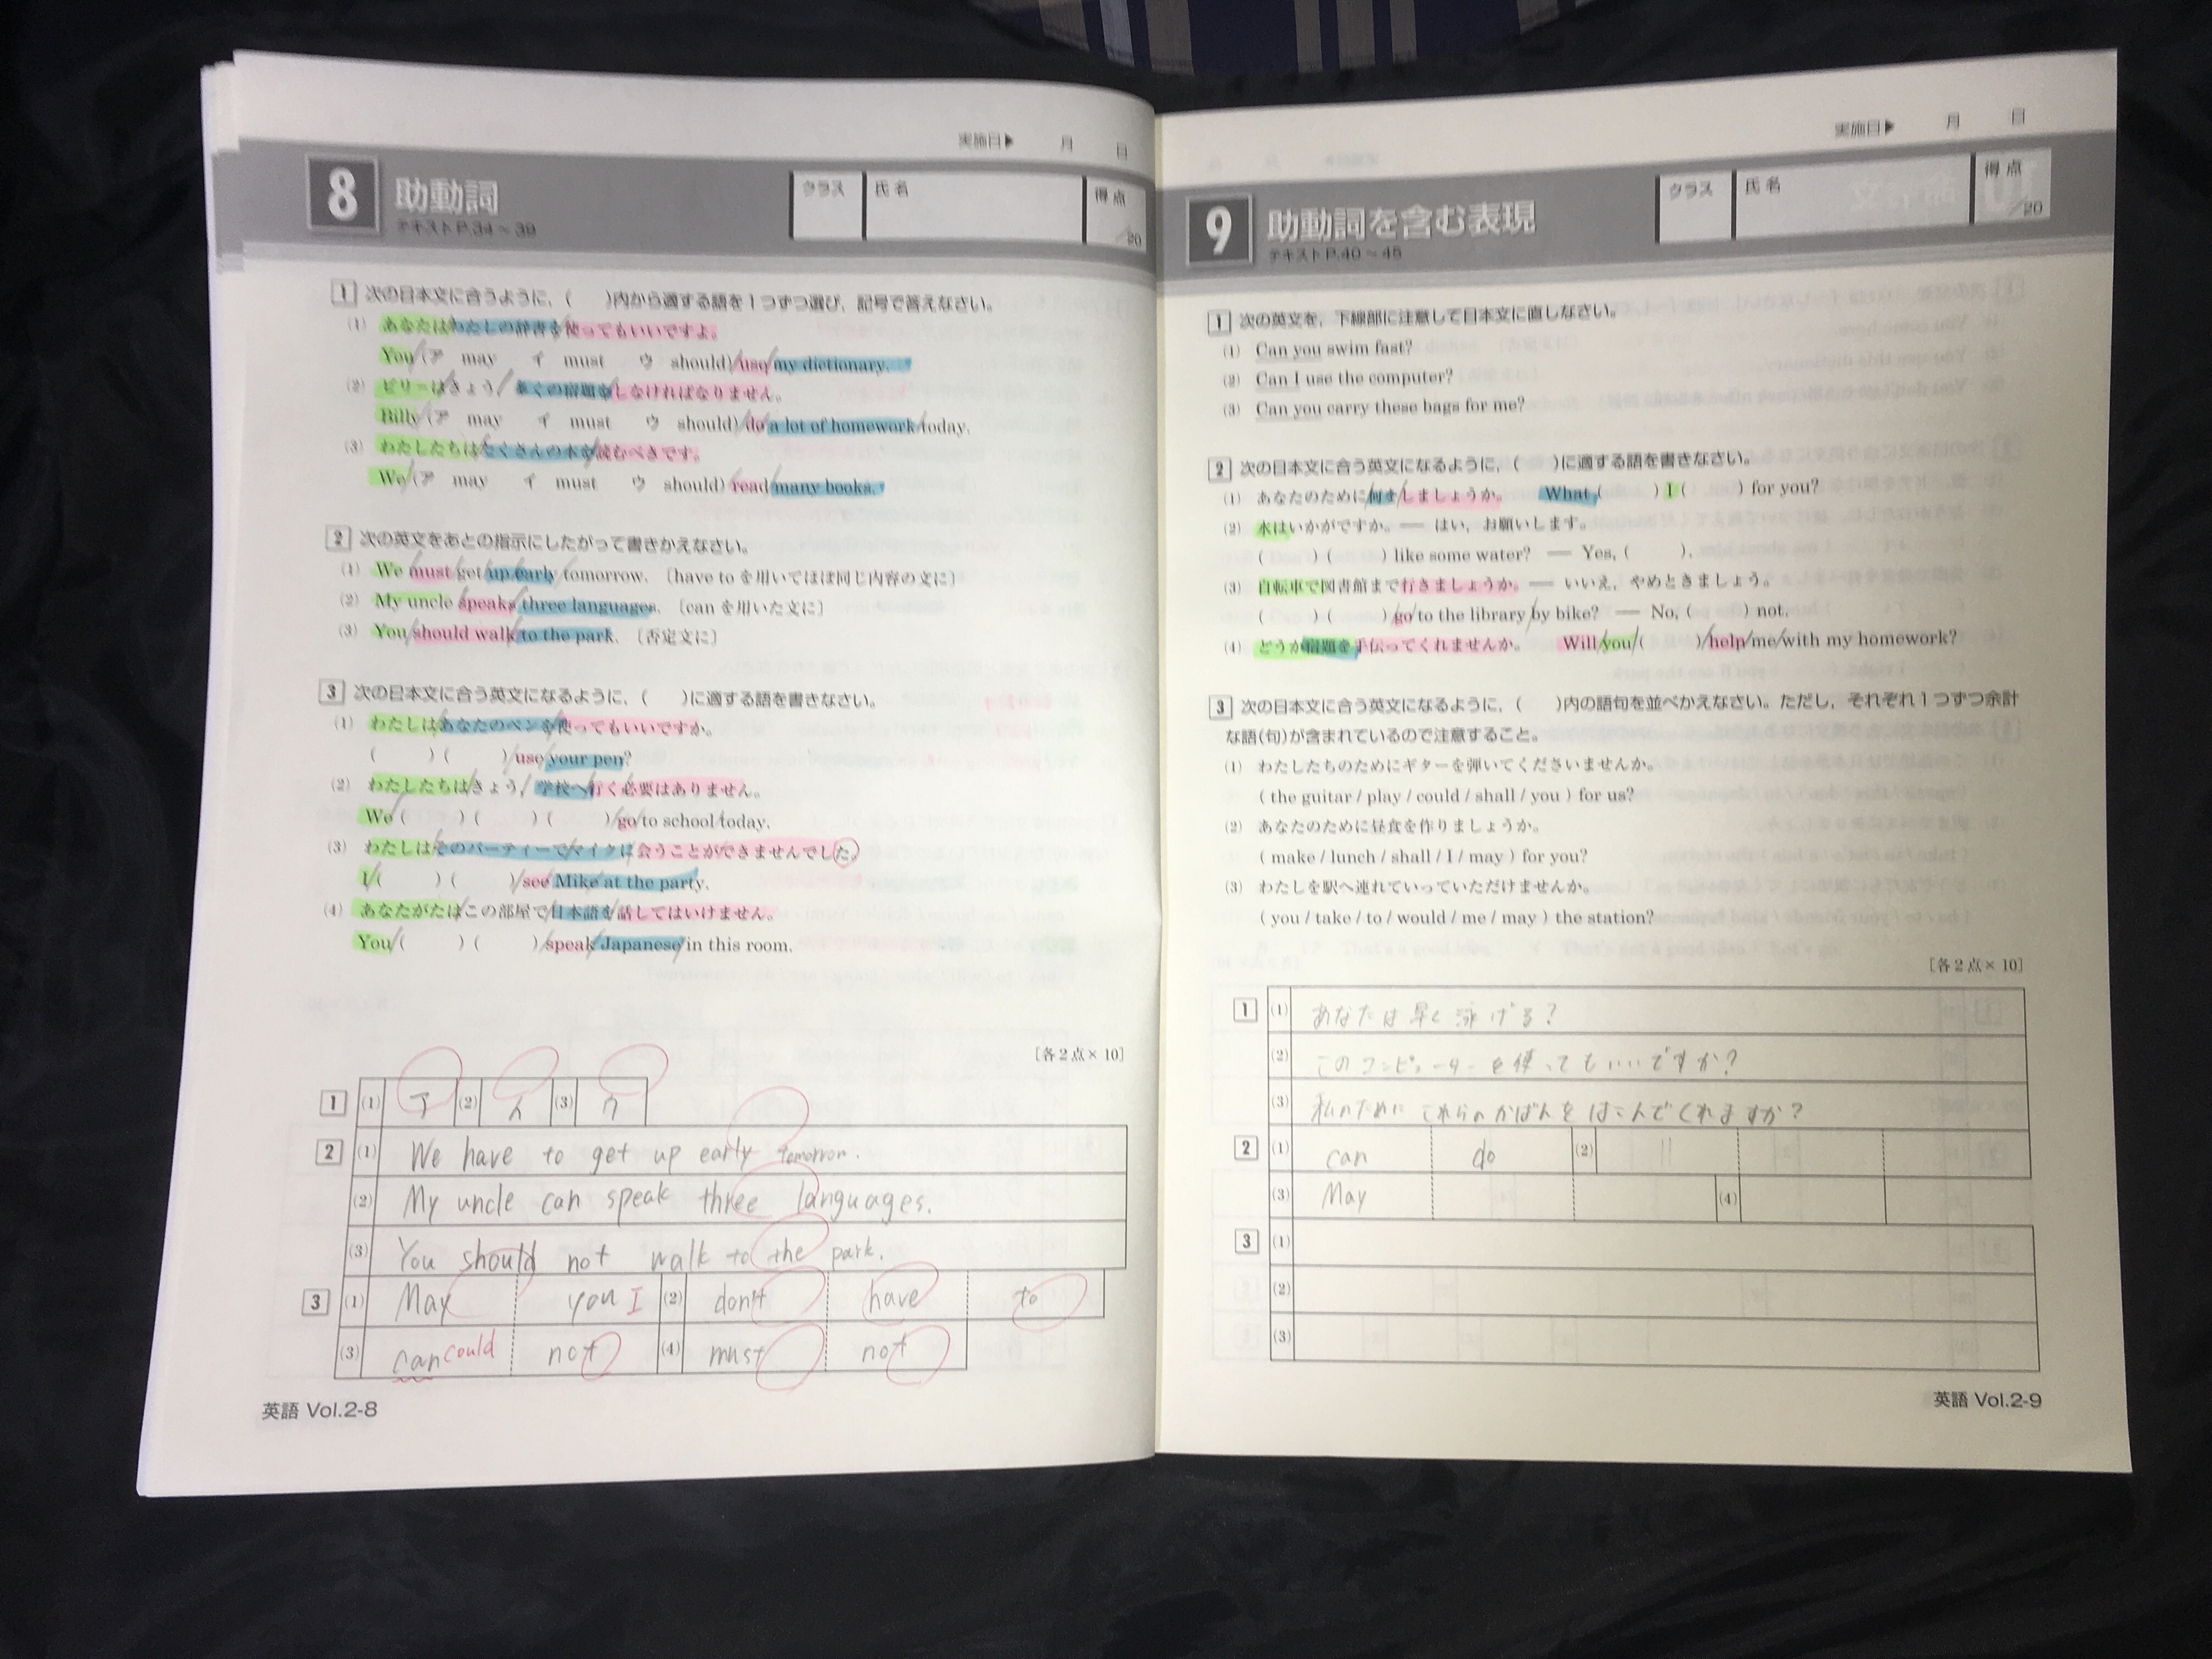 実施日▶ 月 日
8 助動詞
テキスト P.34～39
クラス 氏名 得点 /20
1 次の日本文に合うように，( )内から適する語を1つずつ選び，記号で答えなさい。
(1) あなたはわたしの辞書を使ってもいいですよ。
You (ア may イ must ウ should) use my dictionary.
(2) ビリーはきょう，多くの宿題をしなければなりません。
Billy (ア may イ must ウ should) do a lot of homework today.
(3) わたしたちはたくさんの本を読むべきです。
We (ア may イ must ウ should) read many books.
2 次の英文をあとの指示にしたがって書きかえなさい。
(1) We must get up early tomorrow. 〔have to を用いてほぼ同じ内容の文に〕
(2) My uncle speaks three languages. 〔can を用いた文に〕
(3) You should walk to the park. 〔否定文に〕
3 次の日本文に合う英文になるように，( )に適する語を書きなさい。
(1) わたしはあなたのペンを使ってもいいですか。
( ) ( ) use your pen?
(2) わたしたちはきょう，学校へ行く必要はありません。
We ( ) ( ) ( ) go to school today.
(3) わたしはそのパーティーでマイクに会うことができませんでした。
I ( ) ( ) see Mike at the party.
(4) あなたがたはこの部屋で日本語を話してはいけません。
You ( ) ( ) speak Japanese in this room.
[各2点×10]
1 (1) ア (2) イ (3) ウ
2 (1) We have to get up early tomorrow.
(2) My uncle can speak three languages.
(3) You should not walk to the park.
3 (1) May you I (2) don't have to
(3) can could not (4) must not
英語 Vol.2-8
実施日▶ 月 日
9 助動詞を含む表現
テキスト P.40～45
クラス 氏名 得点 /20
1 次の英文を，下線部に注意して日本文に直しなさい。
(1) Can you swim fast?
(2) Can I use the computer?
(3) Can you carry these bags for me?
2 次の日本文に合う英文になるように，( )に適する語を書きなさい。
(1) あなたのために何をしましょうか。 What ( ) I ( ) for you?
(2) 水はいかがですか。— はい，お願いします。
( ) ( ) like some water? — Yes, ( ).
(3) 自転車で図書館まで行きましょうか。— いいえ，やめときましょう。
( ) ( ) go to the library by bike? — No, ( ) not.
(4) どうか宿題を手伝ってくれませんか。 Will you ( ) help me with my homework?
3 次の日本文に合う英文になるように，( )内の語句を並べかえなさい。ただし，それぞれ1つずつ余計
な語(句)が含まれているので注意すること。
(1) わたしたちのためにギターを弾いてくださいませんか。
( the guitar / play / could / shall / you ) for us?
(2) あなたのために昼食を作りましょうか。
( make / lunch / shall / I / may ) for you?
(3) わたしを駅へ連れていっていただけませんか。
( you / take / to / would / me / may ) the station?
[各2点×10]
1 (1) あなたは早く泳げる？
(2) このコンピューターを使ってもいいですか？
(3) 私のために これらのかばんを はこんでくれますか？
2 (1) can do (2)
(3) May (4)
3 (1)
(2)
(3)
英語 Vol.2-9